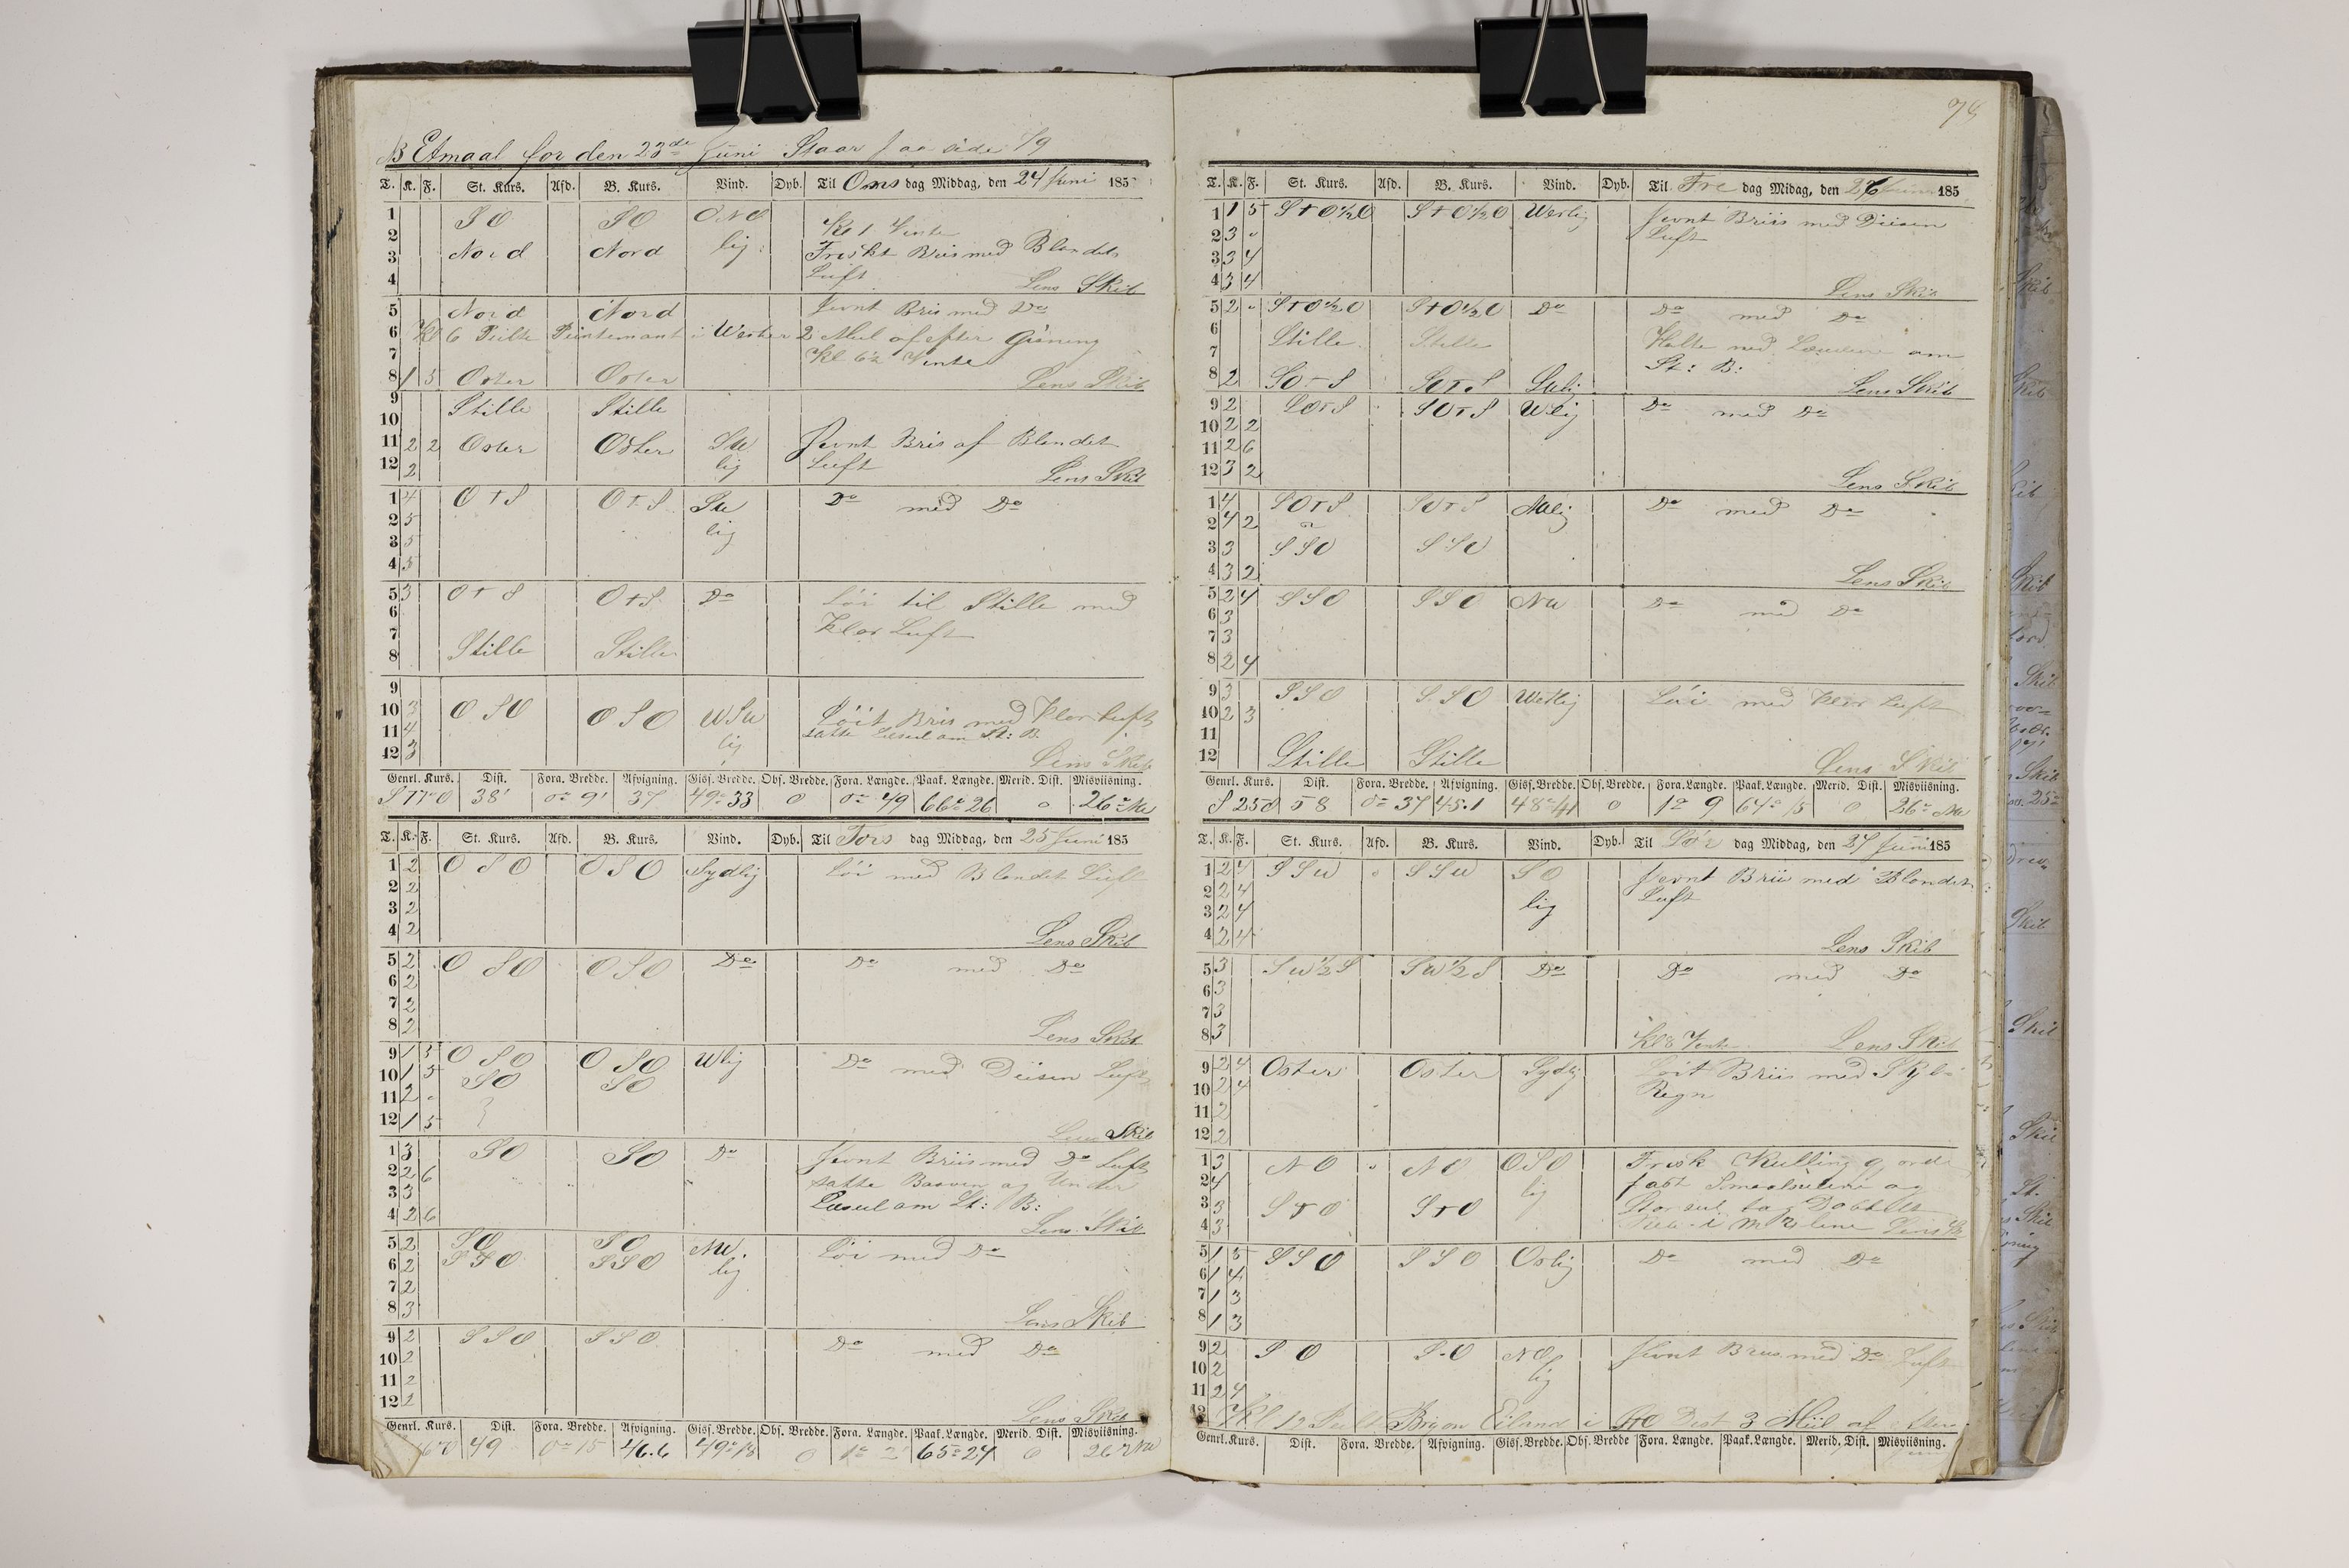 Etmaal for den 23de Juni Staar paa side 19
T. K. F. St. Kurs. Afd. B. Kurs. Vind. Dyb. Til Ons dag Middag, den 24 Juni 185
1 SO SO ONO Kl 1 Vente
2 lig Friskt Bris med Blandet
3 Nord Nord Luft
4 Lens Skib
5 Nord Nord Jevnt Bris med Do
6 Kl 6 Peilte i Wester 2 Miil af efter Gisning
7 Kl 6½ Vente
8 1 5 Oster Oster Lens Skib
9 Stille Stille
10
11 2 2 Oster Oster SW Jevnt Bris af Blandet
12 2 lig Luft Lens Skib
1 4 O t S O t S SW Do med Do
2 5 lig
3 5
4 5
5 3 O t S O t S Do Löi til Stille med
6 Klar Luft
7 Stille Stille
8
9
10 3 O SO O SO WSW Löit Bris med Klar Luft
11 4 lig satte am St: B.
12 3 Lens Skib
Genrl. Kurs. Dist. Fora. Bredde. Afvigning. Gisf. Bredde. Obs. Bredde. Fora. Længde. Paak. Længde. Merid. Dist. Misviisning.
S 77° O 38' 0° 9' 37 49° 33 0 0° 49 66° 26 0 26° NW
T. K. F. St. Kurs. Afd. B. Kurs. Vind. Dyb. Til Tors dag Middag, den 25 Juni 185
1 2 O S O O S O Sydlig Löi med Blandet Luft
2 2
3 2
4 2 Lens Skib
5 2 O SO O SO Do Do med Do
6 2
7 2
8 2 Lens Skib
9 1 5 O SO O SO Wlig Do med Diisen Luft
10 1 5 SO SO
11 2
12 1 5 Lens Skib
1 3 SO SO Do Jevnt Briis med Do Luft
2 2 6 satte Boven og Under
3 3 am St: B:
4 2 6 Lens Skib
5 2 SO SO NW. Löi med Do
6 2 SSO SSO lig
7 2
8 3 Lens Skib
9 2 SSO SSO Do med Do
10 2
11 2
12 2 Lens Skib
Genrl. Kurs. Dist. Fora. Bredde. Afvigning. Gisf. Bredde. Obs. Bredde. Fora. Længde. Paak. Længde. Merid. Dist. Misviisning.
49 0° 15 46.6 49° 18 0 1° 2' 65° 24 0 26° NW
T. K. F. St. Kurs. Afd. B. Kurs. Vind. Dyb. Til Fre dag Midag, den 26 Juni 185
1 1 5 S t O ½ O S t O ½ O Westlig Jevnt Briis med Diisen
2 3 Luft
3 3 4
4 3 4 Lens Skib
5 2 S t O ½ O S t O ½ O Do Do med Do
6 Stille Stille Halte ned am
7 St: B:
8 2 SO t S SO t S Lens Skib
9 2 SO t S SO t S Wlig Do med Do
10 2 2
11 2 6
12 3 2 Lens Skib
1 4 SO t S SO t S NWlig Do med Do
2 4 2
3 3 SSO SSO
4 3 2 Lens Skib
5 2 4 SSO SSO NW Do med Do
6 3
7 3
8 2 4
9 3 SSO SSO Westlig Löi med Klar Luft
10 2 3
11
12 Stille Stille Lens Skib
Genrl. Kurs. Dist. Fora. Bredde. Afvigning. Gisf. Bredde. Obs. Bredde. Fora. Længde. Paak. Længde. Merid. Dist. Misviisning.
58 0° 37 45.1 48° 41 0 1° 9 64° 15 0 26° NW
T. K. F. St. Kurs. Afd. B. Kurs. Vind. Dyb. Til Lör dag Middag, den 27 Juni 185
1 2 4 SSW SSW SO Jevnt Briis med Blandet
2 2 4 Luft
3 2 4 lig
4 2 4 Lens Skib
5 3 SW ½ S SW ½ S Do Do med Do
6 3
7 3
8 3 Kl 8 Vente Lens Skib
9 2 4 Oster Oster Sydlig Löit Briis med Sky &
10 2 4 Regn
11 2
12 2
1 3 NO NO OSO Frisk Kulling gjorde
2 4 lig fast Smaaseilene og
3 3 S t O S t O Storseil tog Dobbelt
4 3
5 1 5 SSO SSO Oslig Do med Do
6 1 4
7 1 3
8 1 3
9 2 S O S O NO Jevnt Briis med Do Luft
10 2 lig
11 2 4
12 Kl 12 Bryon Eiland i Dist 3 Miil af
Genrl. Kurs. Dist. Fora. Bredde. Afvigning. Gisf. Bredde. Obs. Bredde Fora. Længde. Paak. Længde. Merid. Dist. Misviisning.